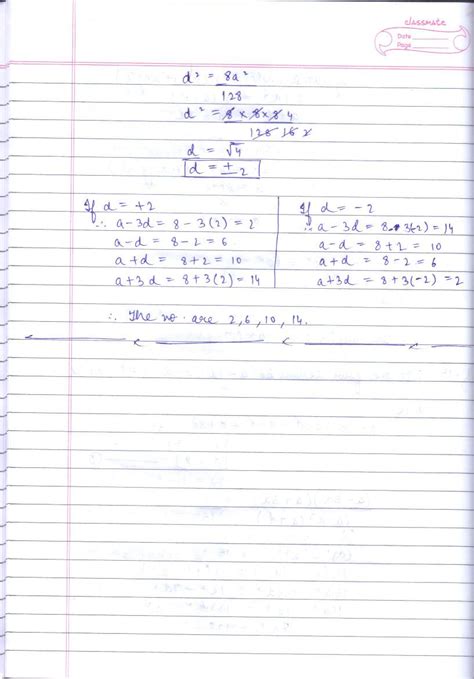 classmate
Date
Page
d² = 8a²
128
d² = 8 × 8 × 8 4
128 16 2
d = √4
d = ± 2
If d = +2
∴ a - 3d = 8 - 3(2) = 2
a - d = 8 - 2 = 6
a + d = 8 + 2 = 10
a + 3d = 8 + 3(2) = 14
If d = -2
∴ a - 3d = 8 - 3(-2) = 14
a - d = 8 + 2 = 10
a + d = 8 - 2 = 6
a + 3d = 8 + 3(-2) = 2
∴ The no. are 2, 6, 10, 14.